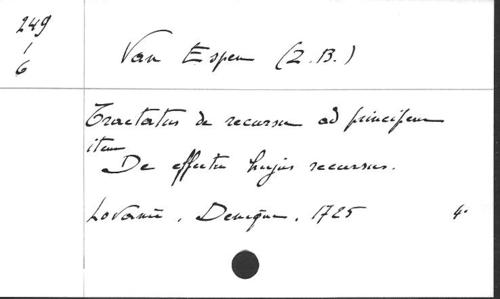 249
1
6
Van Espen (Z. B.)
Tractatus de recursu ad principem
item
De effectu hujus recursus.
Lovanii, Denique, 1725 4°